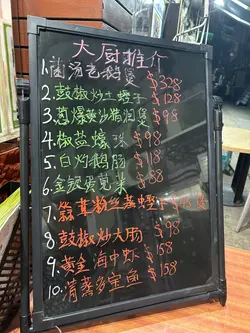 大厨推介
1.菌汤老鹅煲 $328
2.鼓椒炒土蟶子 $128
3.葱爆爽沙猪润煲 $98
4.椒盐蠔珠 $98
5.白灼鹅肠 $118
6.金银蛋苋米 $88
7.蒜茸粉丝蒸蟶
8.鼓椒炒大肠 $98
9.黄金海中虾 $158
10.清蒸多宝鱼 $158